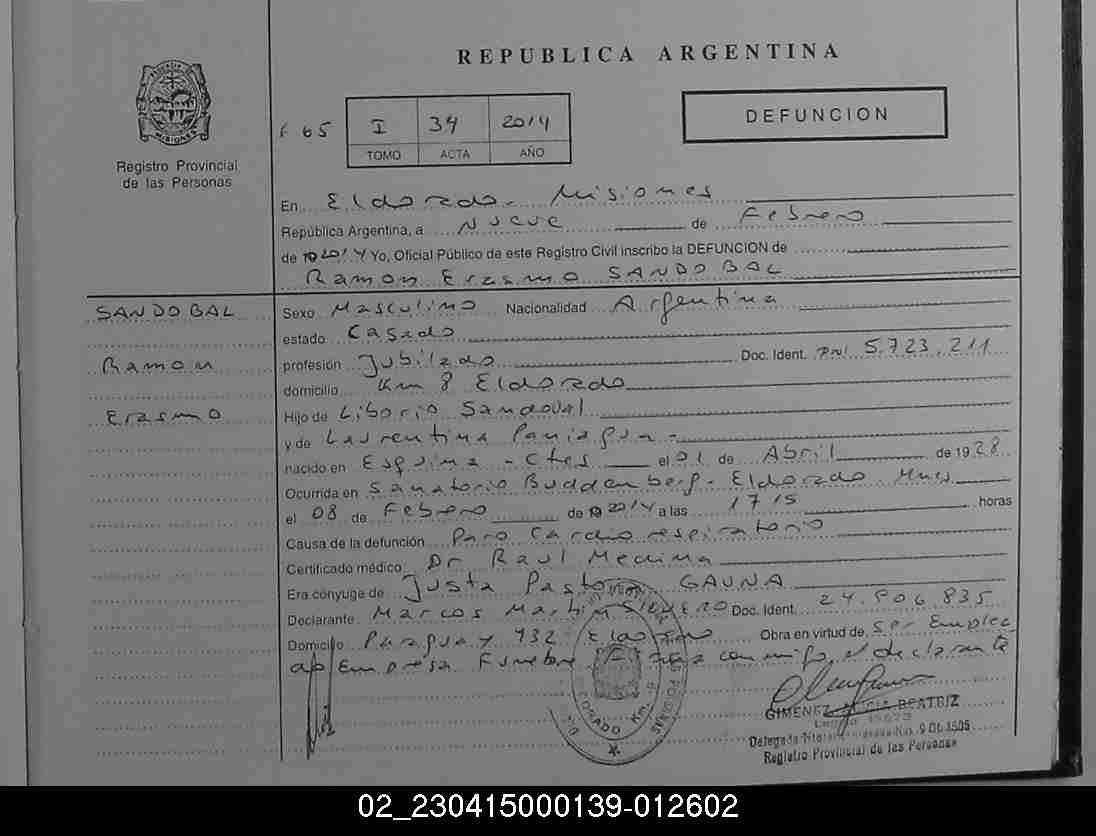 REPUBLICA ARGENTINA
DEFUNCION
F 65 I 34 2014
TOMO ACTA AÑO
Registro Provincial
de las Personas
En Eldorado - Misiones
República Argentina, a Nueve de Febrero
de 2014 Yo, Oficial Público de este Registro Civil inscribo la DEFUNCION de
Ramon Erasmo SANDOBAL
SANDOBAL
Ramon
Erasmo
Sexo Masculino Nacionalidad Argentina
estado Casado
profesión Jubilado Doc. Ident. DNI 5.723.211
domicilio Km 8 Eldorado
Hijo de Liborio Sandoval
y de Laurentina Paniagua -
nacido en Esquina - Ctes el 01 de Abril de 1928
Ocurrida en Sanatorio Buddenberg - Eldorado Mnes
el 08 de Febrero de 2014 a las 1715 horas
Causa de la defunción Paro Cardio respiratorio
Certificado médico Dr Raul Medina
Era cónyuge de Justa Pastora GAUNA
Declarante Marcos Martin Doc. Ident. 24.906.835
Domicilio Paraguay 932 Eldorado Obra en virtud de Ser Emplea
do Empresa Funebre Firma conmigo el declarante
GIMENEZ BEATRIZ
Delegada Titular
Registro Provincial de las Personas
02_230415000139-012602